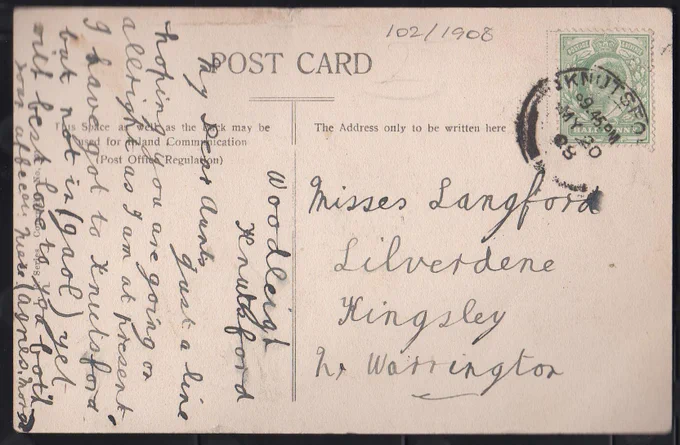 102/1908
POST CARD
This Space as well as the Back may be
used for Inland Communication
(Post Office Regulation)
The Address only to be written here
POSTAGE REVENUE
HALFPENNY
KNUTSFORD
9.45PM
MY 20
08
Misses Langford
Lilverdene
Kingsley
Nr Warrington
Woodleigh
Knutsford
My Dear Aunts
Just a line
hoping you are going on
allright as I am at present
I have got to Knutsford
but not in (gaol) yet
with best love to you both
from Niece (Agnes. Nora